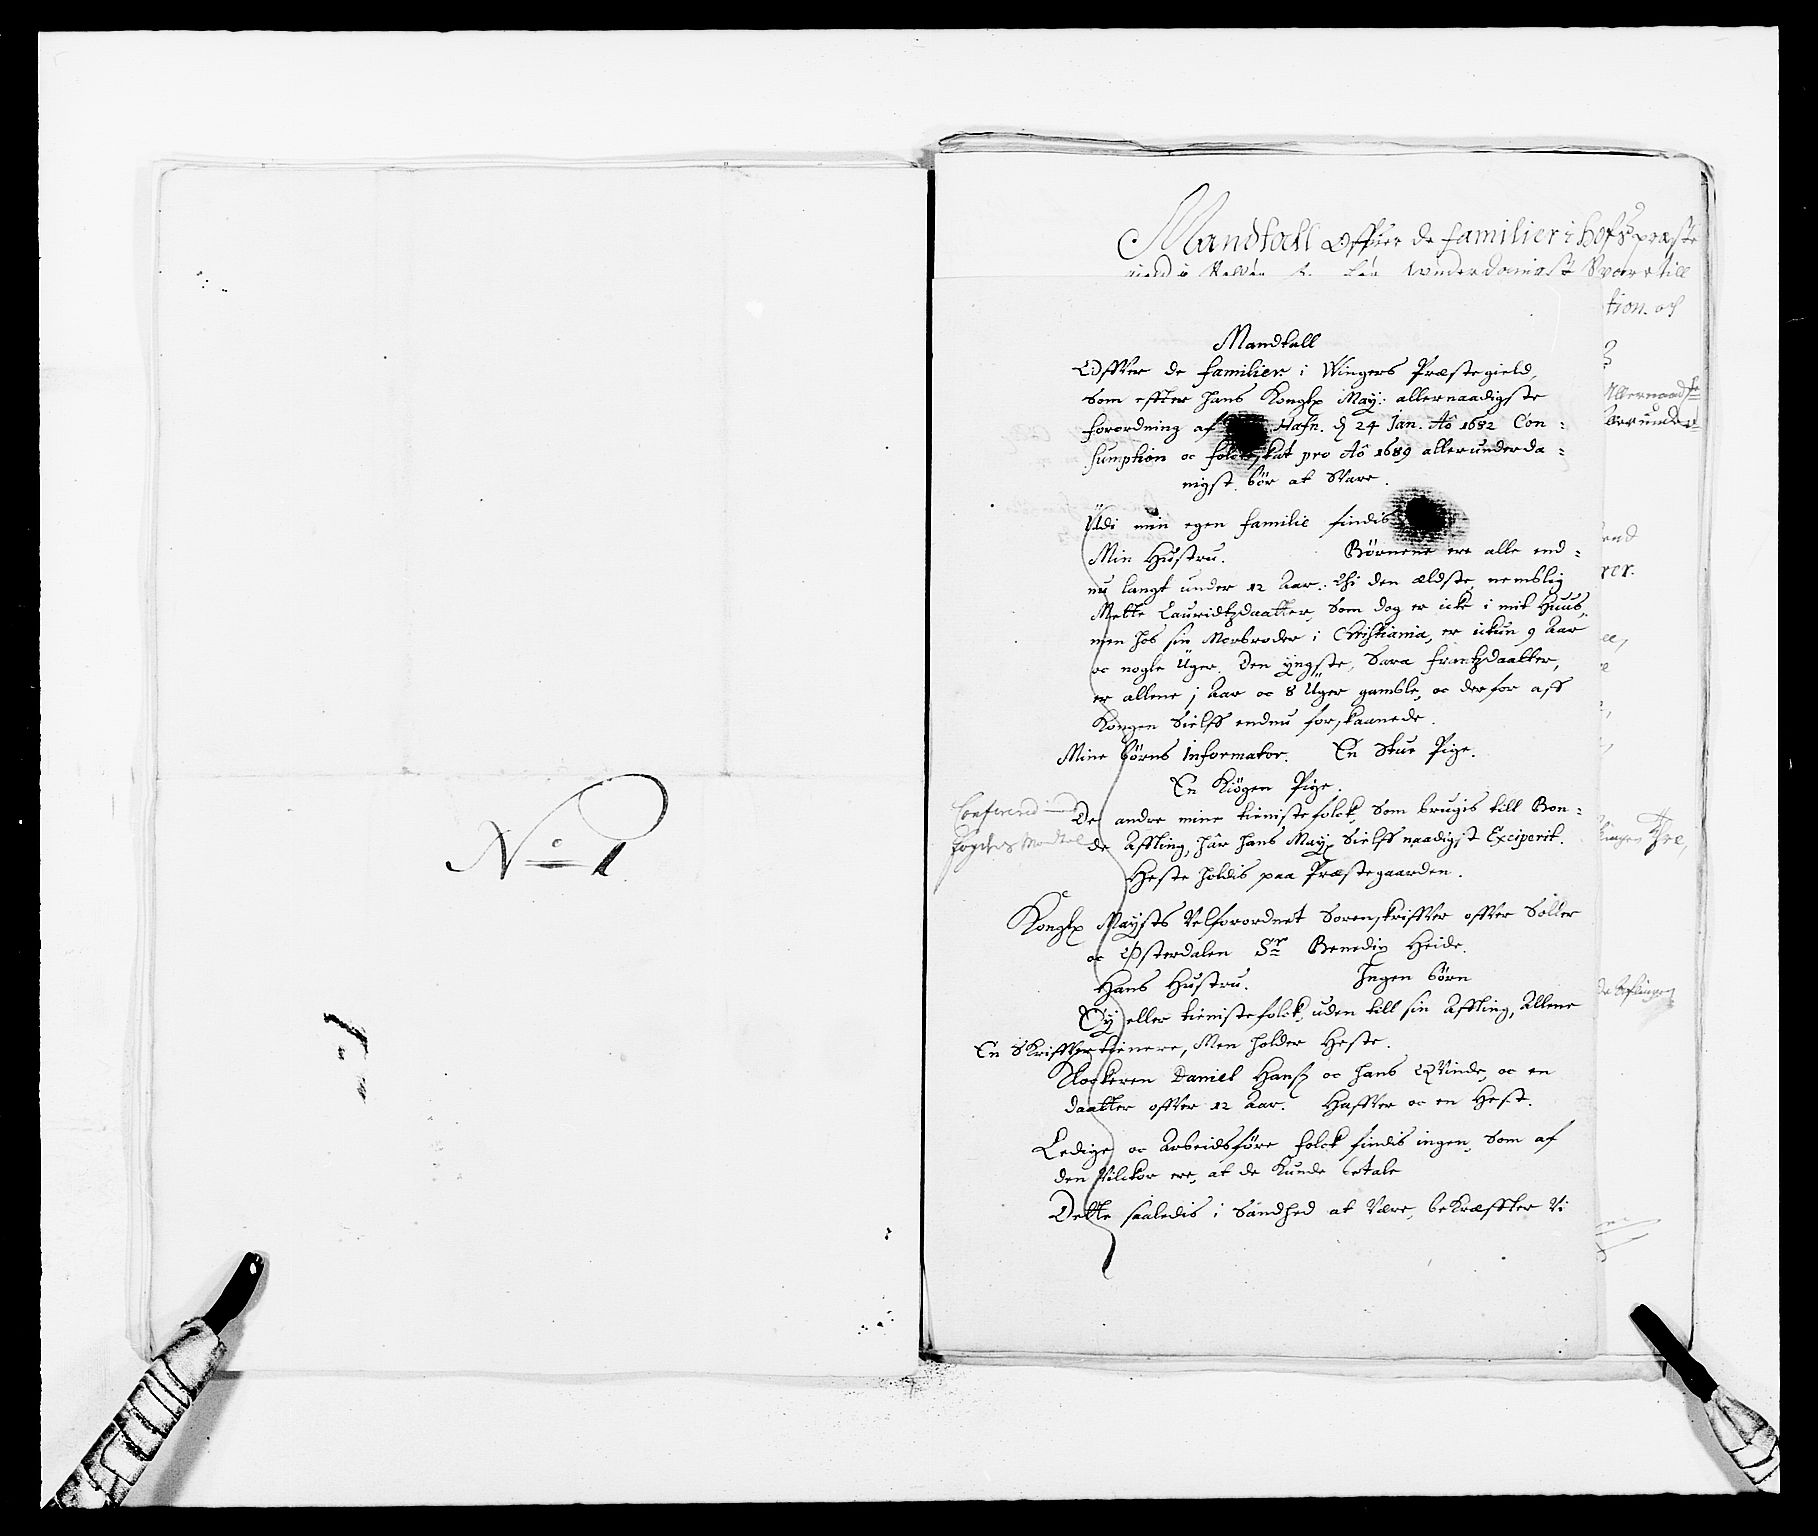 No 1
Mandtall Offuer de familier i Hofs præste
Underdanigst Svare till
tion. och
Mandtall
Offver de familier i Wingers Præstegield,
Som effter Hans Kongl May: allernaadigste
forordning af Hafn. d 24 Jan. Aô 1682 Con:
sumption oc folckeskat pro Aô 1689 allerunderda:
nigst bør at Svare.
Udi min egen familie findis
Min Hustru. Børnene ere alle end:
nu langt under 12 Aar: Thi den ældste, nemlig
Mette Lauridtzdaatter, Som dog er icke i mit Huus,
men hos sin Morbroder i Christiania, er ickun 9 Aar
oc nogle Uger. Den yngste, Sara Frantzdaatter,
er allene j Aar oc 8 Uger gamble, oc derfor aff
Kongen Sielff endnu forskaanede.
Mine Børns Informator. En Stue Pige.
En Kiøgen Pige.
De andre mine tienistefolck, Som brugis till Bon:
de Affling, har Hans May Sielff naadigst Exciperit.
Heste holdis paa Præstegaarden.
Kongl Maysts Velforordnet Sorenskriffver offver Soløer
oc Østerdalen Sr Benedix Heide.
Hans Hustru. Ingen børn
Ey eller tienistefolck, uden till sin Affling, Allene
En Skriffvertienere, Men holder Heste.
Klockeren Daniel Hanß oc hans Qvinde, oc en
daatter offver 12 Aar. Haffver oc en Hest.
Ledige oc Arbeidsføre folck findis ingen, Som af
den Vilckor ere, at de kunde betale
Dette saaledis i Sandhed at Være, bekræffter Vi